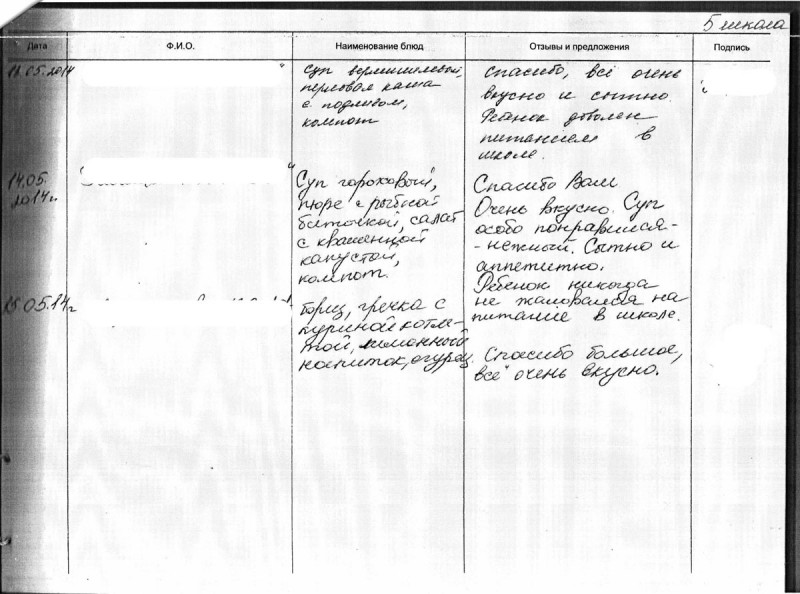 5 школа
Дата Ф.И.О. Наименование блюд Отзывы и предложения Подпись
16.05.2014
Суп вермишелевый,
перловая каша
с подливом,
компот
спасибо, всё очень
вкусно и сытно.
Ребенок доволен
питанием в
школе.
14.05.
2014г.
Суп гороховый,
пюре с рыбной
биточкой, салат
с квашенной
капустой,
компот.
Спасибо Вам
Очень вкусно. Суп
особо понравился-
-нежный. Сытно и
аппетитно.
Ребенок никогда
не жаловался на
питание в школе.
15.05.14г
Борщ, гречка с
куриной котле-
той, лимонный
напиток, огурец.
Спасибо большое,
всё очень вкусно.